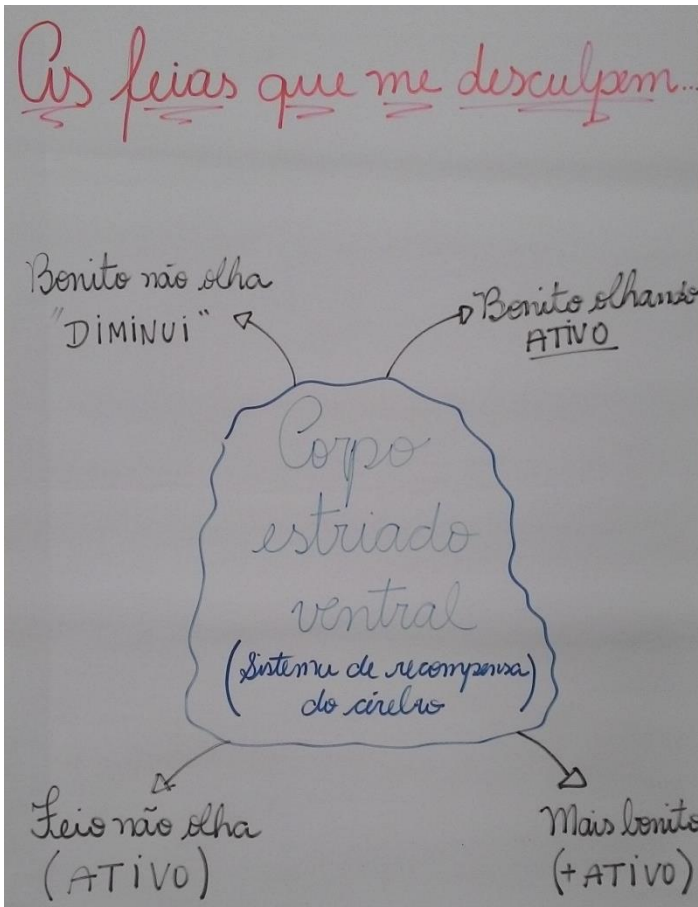 As feias que me desculpem...
Bonito não olha
"DIMINUI"
Bonito olhando
ATIVO
Corpo
estriado
ventral
(Sistema de recompensa)
do cérebro
Feio não olha
(ATIVO)
Mais bonito
(+ ATIVO)